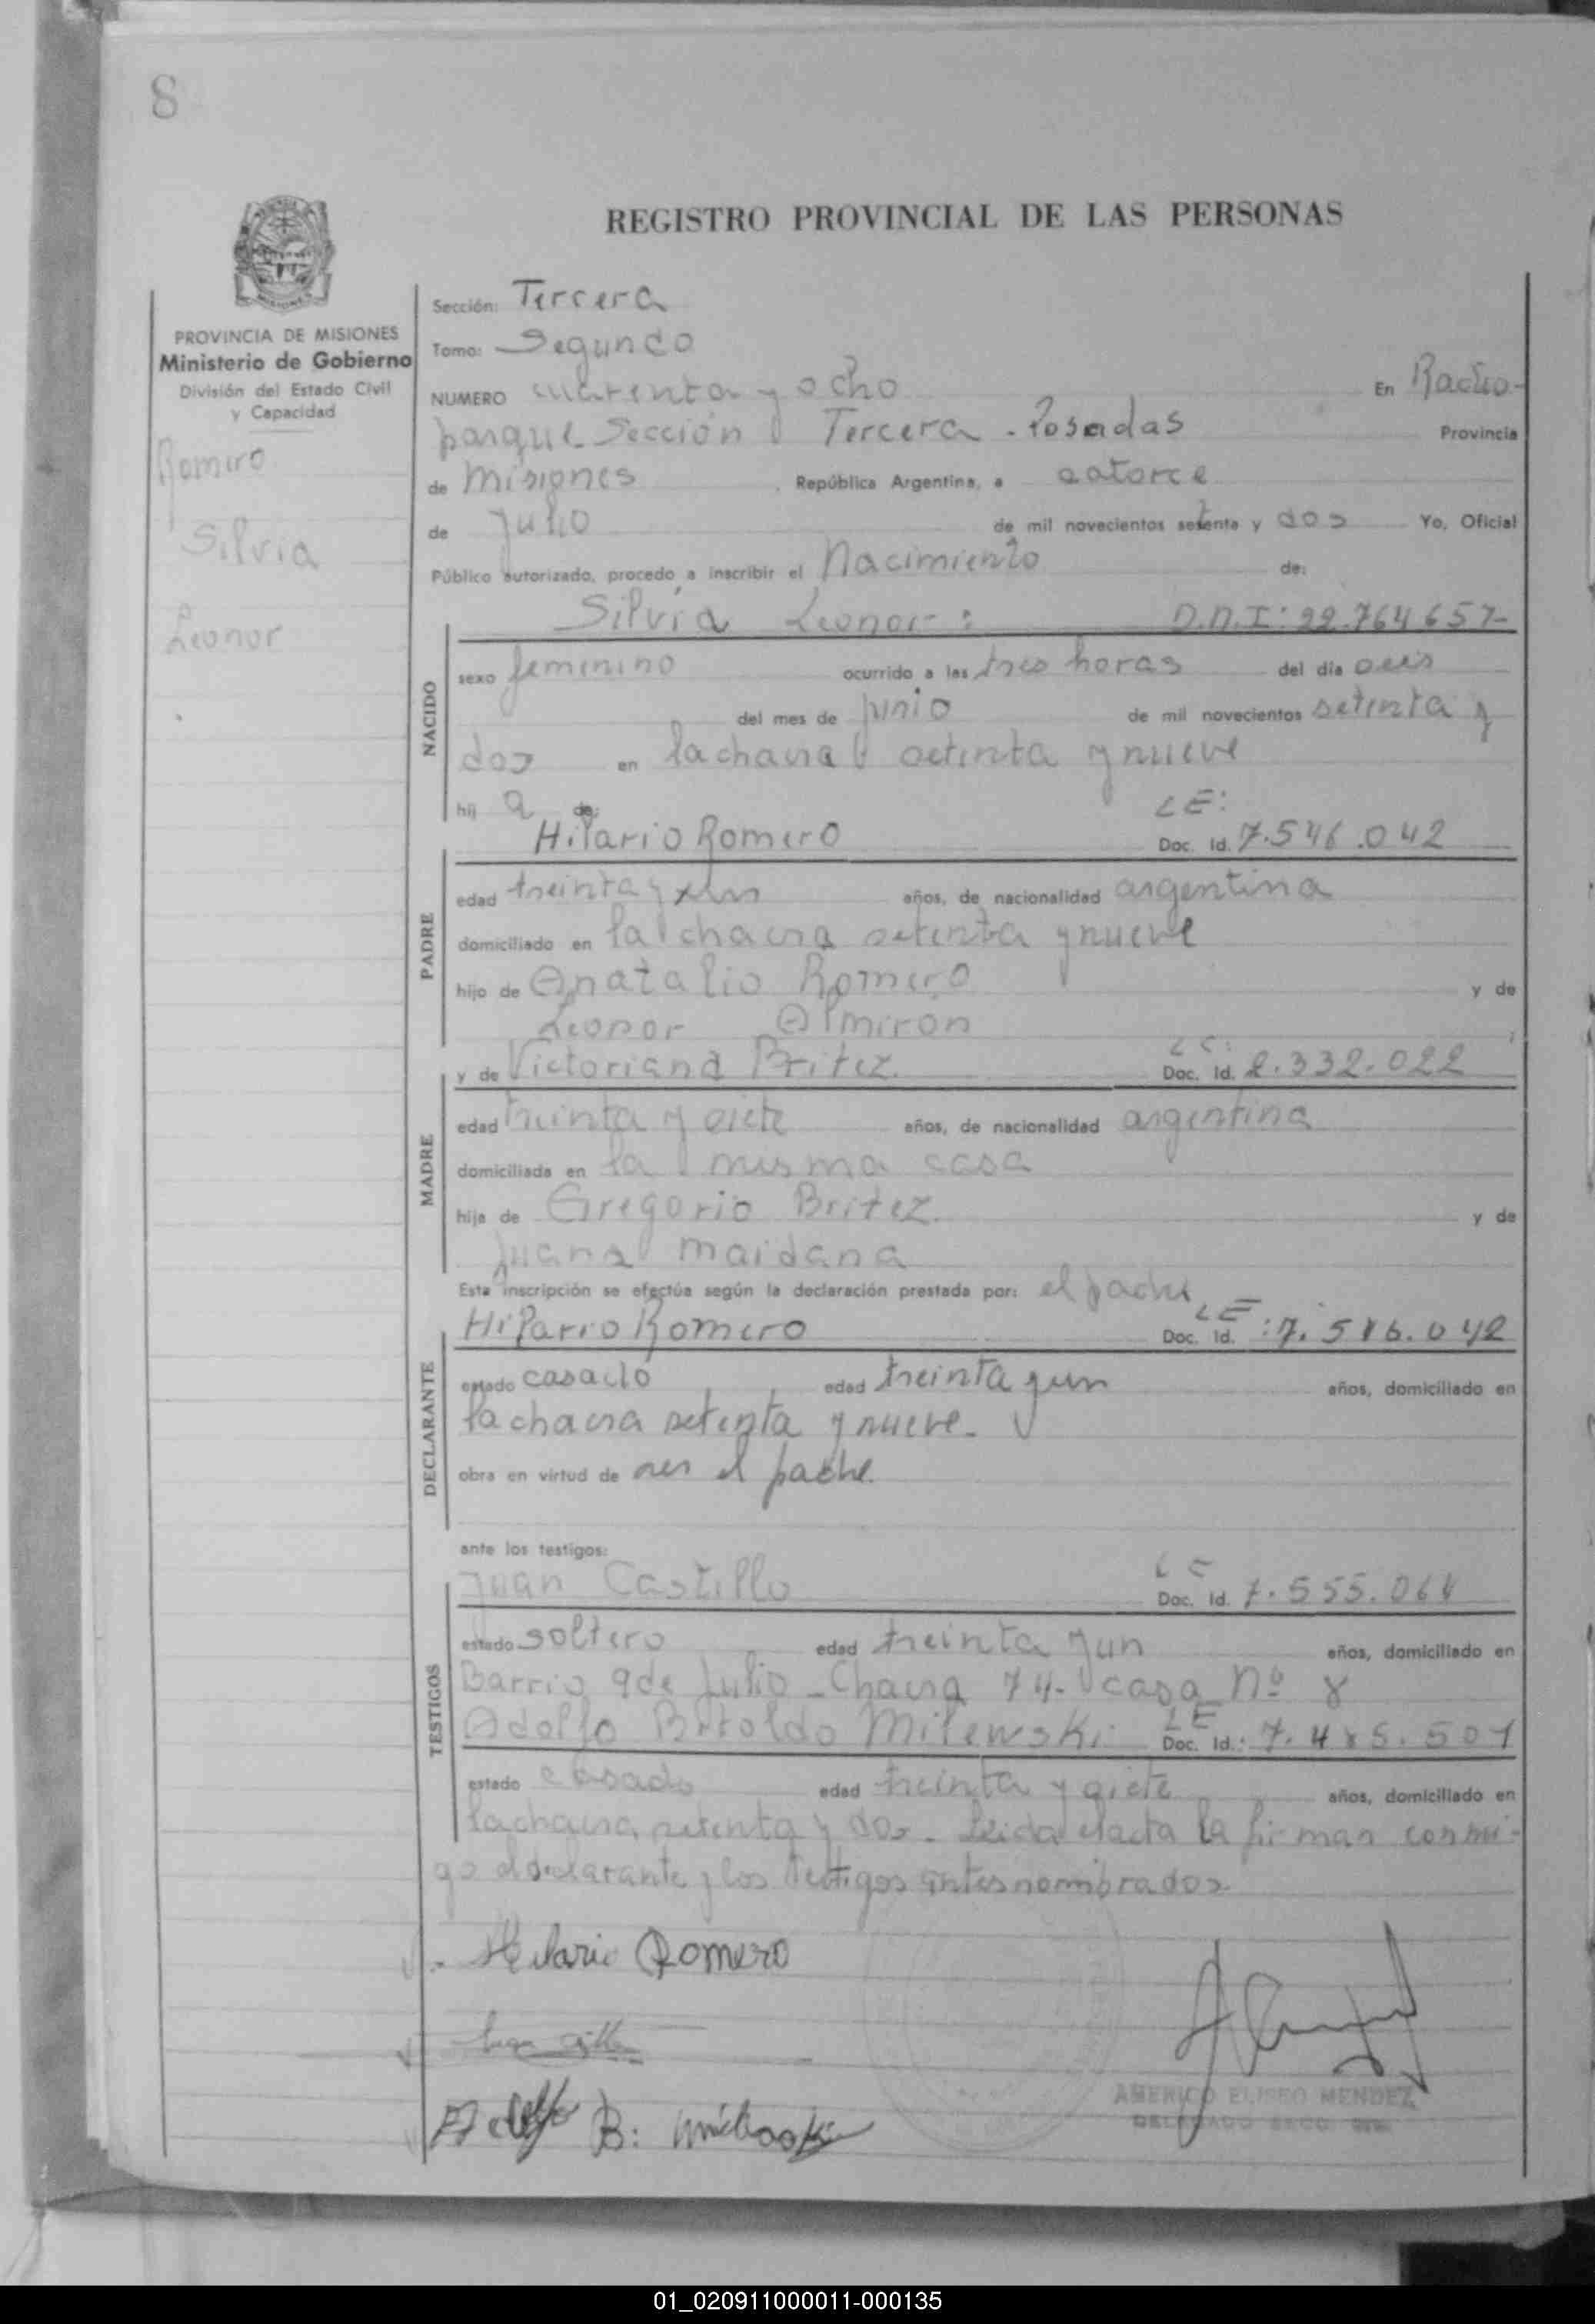 8
REGISTRO PROVINCIAL DE LAS PERSONAS
PROVINCIA DE MISIONES
Ministerio de Gobierno
División del Estado Civil
y Capacidad
Romero
Silvia
Leonor
Sección: Tercera
Tomo: Segundo
NUMERO cuarenta y ocho En Racito-
parque Sección Tercera - Posadas Provincia
de Misiones República Argentina, a catorce
de Julio de mil novecientos setenta y dos Yo, Oficial
Público autorizado, procedo a inscribir el Nacimiento de:
Silvia Leonor: D.N.I: 22.764.657-
NACIDO
sexo femenino ocurrido a las tres horas del día seis
del mes de junio de mil novecientos setenta y
dos en la chacra setenta y nueve
hij a de:
LE:
Hilario Romero Doc. Id. 7.546.042
PADRE
edad treinta y un años, de nacionalidad argentina
domiciliado en la chacra setenta y nueve
hijo de Anatalio Romero y de
Leonor Almiron
LC:
y de Victoriana Britez Doc. Id. 2.332.022
MADRE
edad treinta y siete años, de nacionalidad argentina
domiciliada en la misma casa
hija de Gregorio Britez y de
Juana maidana
Esta inscripción se efectúa según la declaración prestada por: el padre
LE
Hilario Romero Doc. Id. :7.546.042
DECLARANTE
estado casado edad treinta y un años, domiciliado en
la chacra setenta y nueve.
obra en virtud de ser el padre
ante los testigos:
LE
Juan Castillo Doc. Id. 7.555.064
TESTIGOS
estado soltero edad treinta y un años, domiciliado en
Barrio 9 de Julio - Chacra 74- casa nº 8
LE
Adolfo Bertoldo Milewski Doc. Id.: 7.485.501
estado casado edad treinta y siete años, domiciliado en
la chacra setenta y dos. Leida el acta la firman conmi-
go el declarante y los testigos antes nombrados
Hilario Romero
Adolfo B:
AMERICO ELISEO MENDEZ
DELEGADO SECC.
01_020911000011-000135